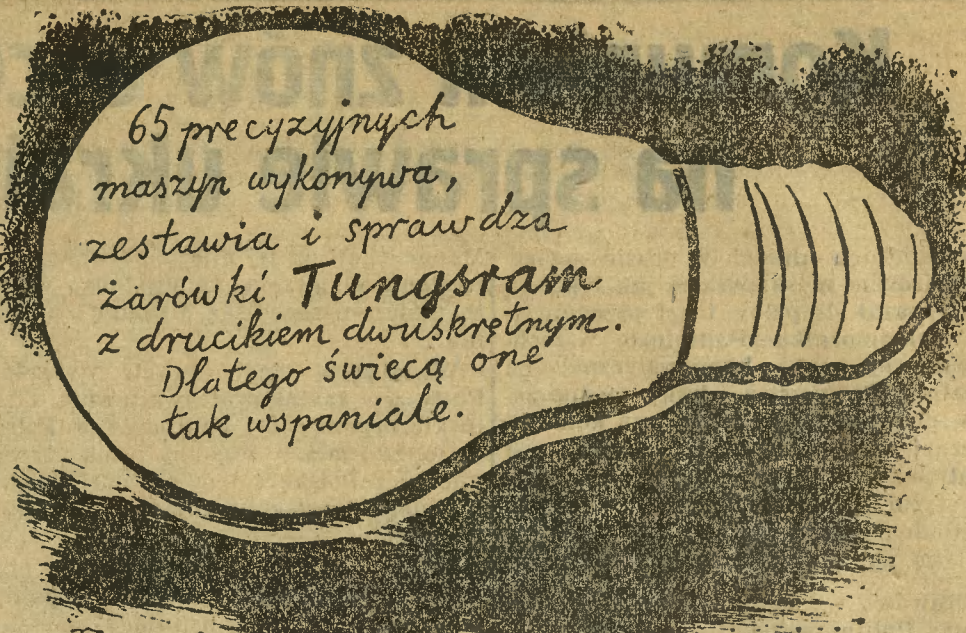 65 precyzyjnych
maszyn wykonywa,
zestawia i sprawdza
żarówki Tungsram
z drucikiem dwuskrętnym.
Dlatego świecą one
tak wspaniale.